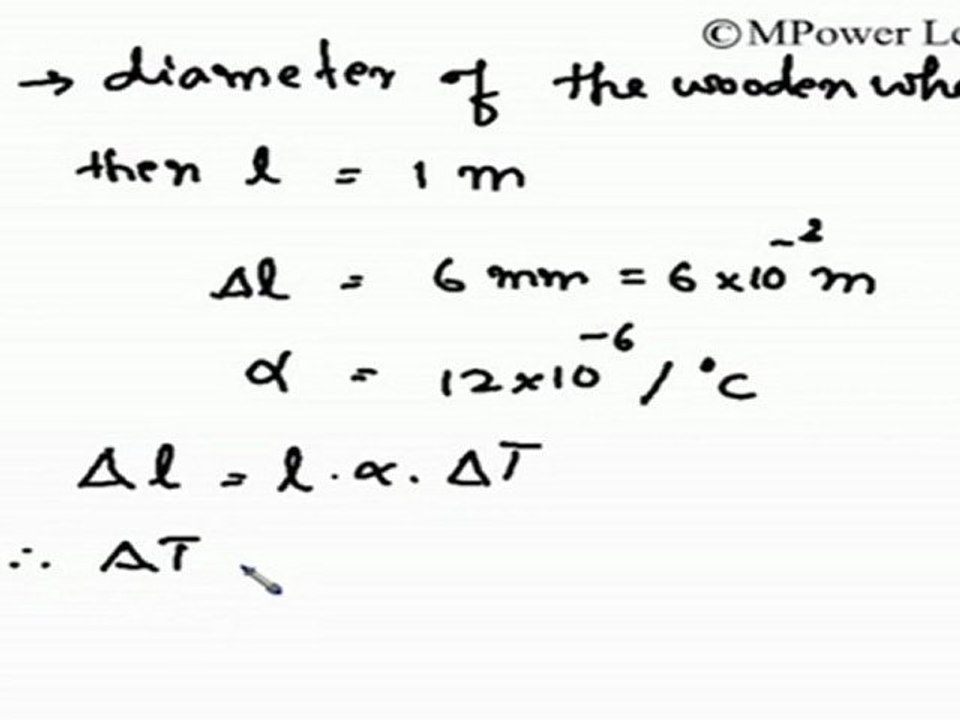 ©MPower
→ diameter of the wooden
then l = 1 m
Δl = 6 mm = 6 ×10⁻² m
α = 12×10⁻⁶ / °C
Δl = l . α . ΔT
∴ ΔT